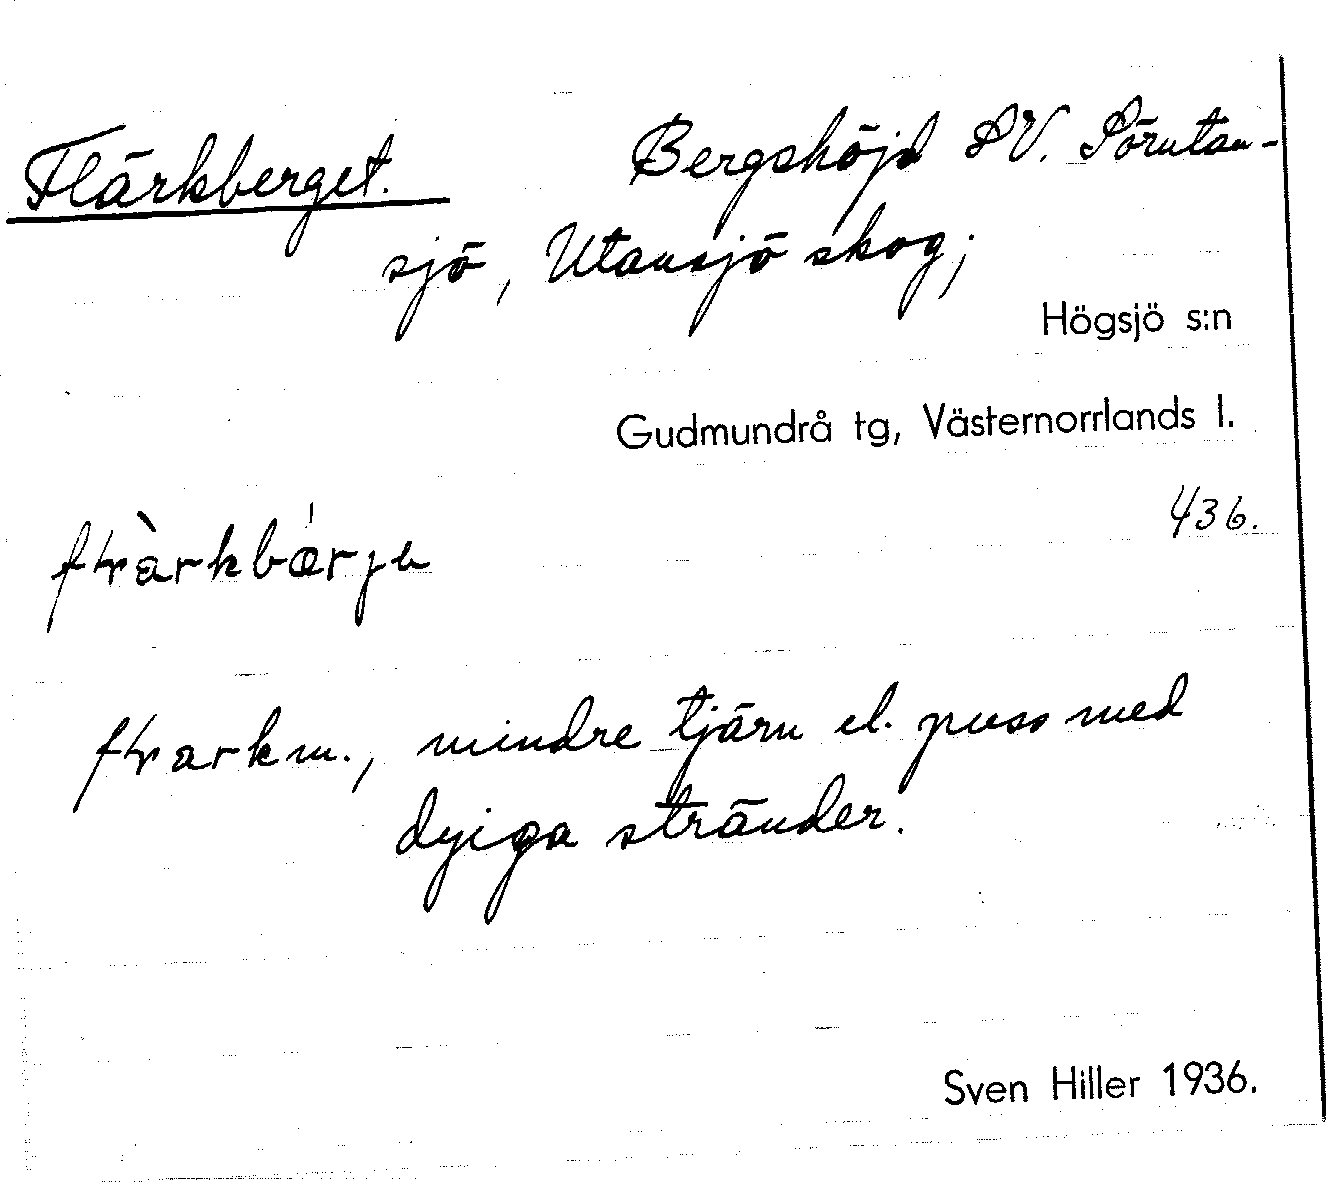 Flärkberget. Bergshöjd SV. Sörutan-
sjö, Utansjö skog;
Högsjö s:n
Gudmundrå tg, Västernorrlands l.
436.
m., mindre tjärn el. puss med
dyiga stränder.
Sven Hiller 1936.